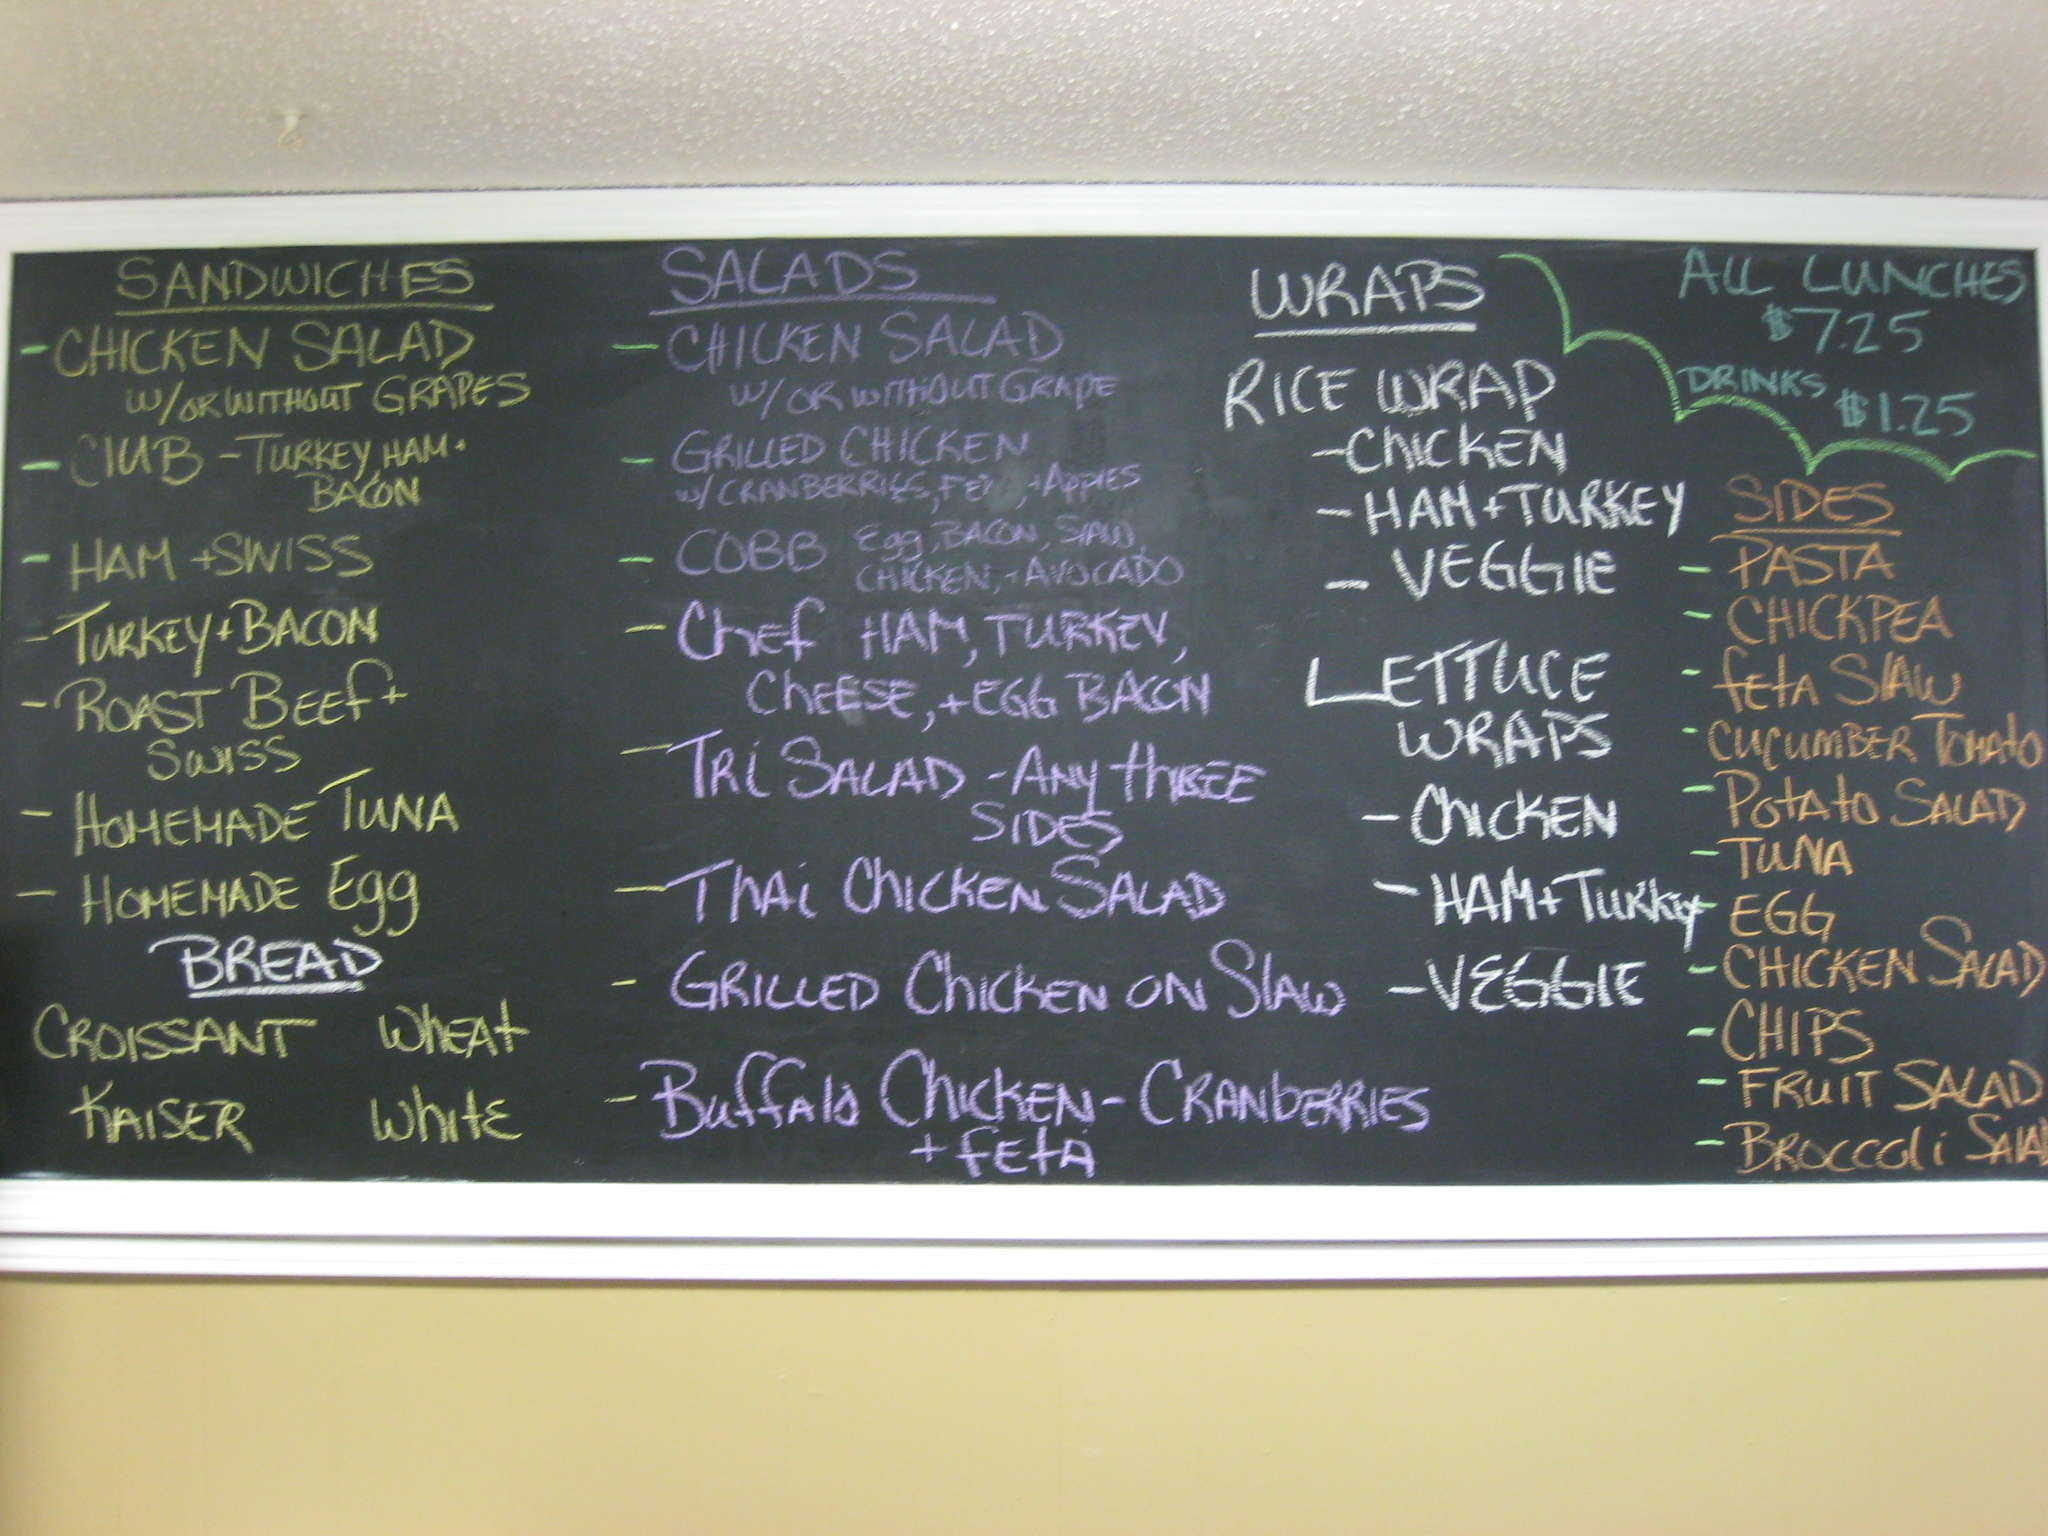 SANDWICHES
CHICKEN SALAD
W/OR WITHOUT GRAPES
CLUB - TURKEY, HAM +
BACON
HAM + SWISS
TURKEY + BACON
ROAST BEEF +
SWISS
HOMEMADE TUNA
HOMEMADE Egg
BREAD
CROISSANT WHEAT
KAISER WHITE
SALADS
CHICKEN SALAD
W/ OR WITHOUT GRAPE
GRILLED CHICKEN
W/ CRANBERRIES, FETA, + APPLES
COBB Egg, BACON, SLAW,
CHICKEN, + AVOCADO
Chef HAM, TURKEY,
CHEESE, + EGG BACON
TRI SALAD - ANY THREE
SIDES
THAI CHICKEN SALAD
GRILLED CHICKEN ON SLAW
Buffalo CHICKEN - CRANBERRIES
+ FETA
WRAPS
RICE WRAP
- CHICKEN
- HAM + TURKEY
- VEGGIE
LETTUCE
WRAPS
- CHICKEN
- HAM + TURKEY
- VEGGIE
ALL LUNCHES
$7.25
DRINKS $1.25
SIDES
- PASTA
- CHICKPEA
- feta SLAW
- CUCUMBER TOMATO
- Potato SALAD
- TUNA
- EGG
- CHICKEN SALAD
- CHIPS
- FRUIT SALAD
- BROCCOLI SALAD